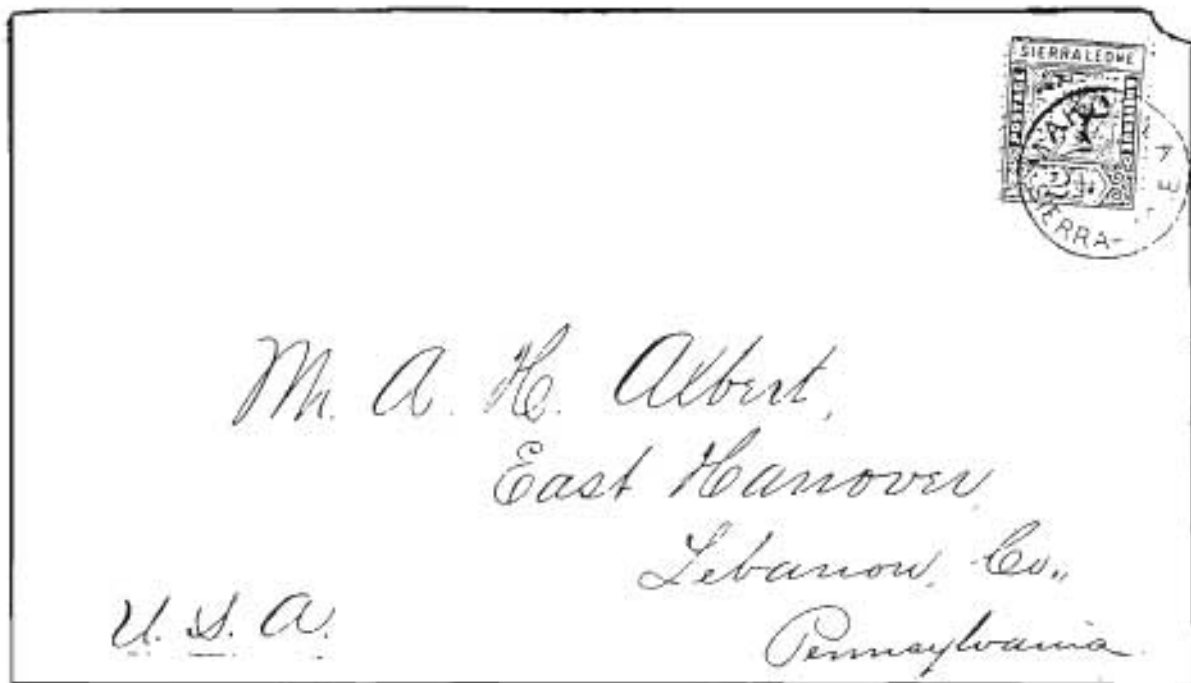 SIERRA LEONE
SIERRA-
Mr. A. H. Albert,
East Hanover,
Lebanon, Co.,
Pennsylvania.
U. S. A.